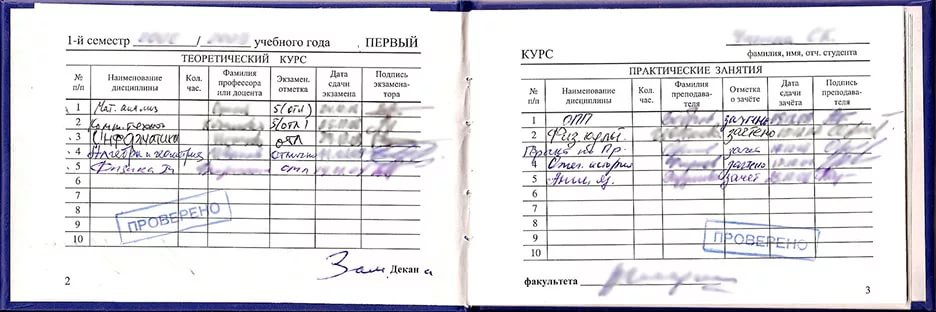 1-й семестр / учебного года ПЕРВЫЙ
ТЕОРЕТИЧЕСКИЙ КУРС
№ п/п Наименование дисциплины Кол. час. Фамилия профессора или доцента Экзамен. отметка Дата сдачи экзамена Подпись экзаменатора
1 Мат. анализ 5(отл)
2 5(отл)
3 Информатика отл
4 Алгебра и геометрия отлично
5 Физика отл
6
7
8
9
10
ПРОВЕРЕНО
Зам. Декана
2
КУРС
фамилия, имя, отч. студента
ПРАКТИЧЕСКИЕ ЗАНЯТИЯ
№ п/п Наименование дисциплины Кол. час. Фамилия преподавателя Отметка о зачёте Дата сдачи зачёта Подпись преподавателя
1 ОПП зачтено
2 Физ. зачтено
Пр. зачет
4 Отеч. история зачтено
5 Англ. яз. зачет
6
7
8
9
10
ПРОВЕРЕНО
факультета
3